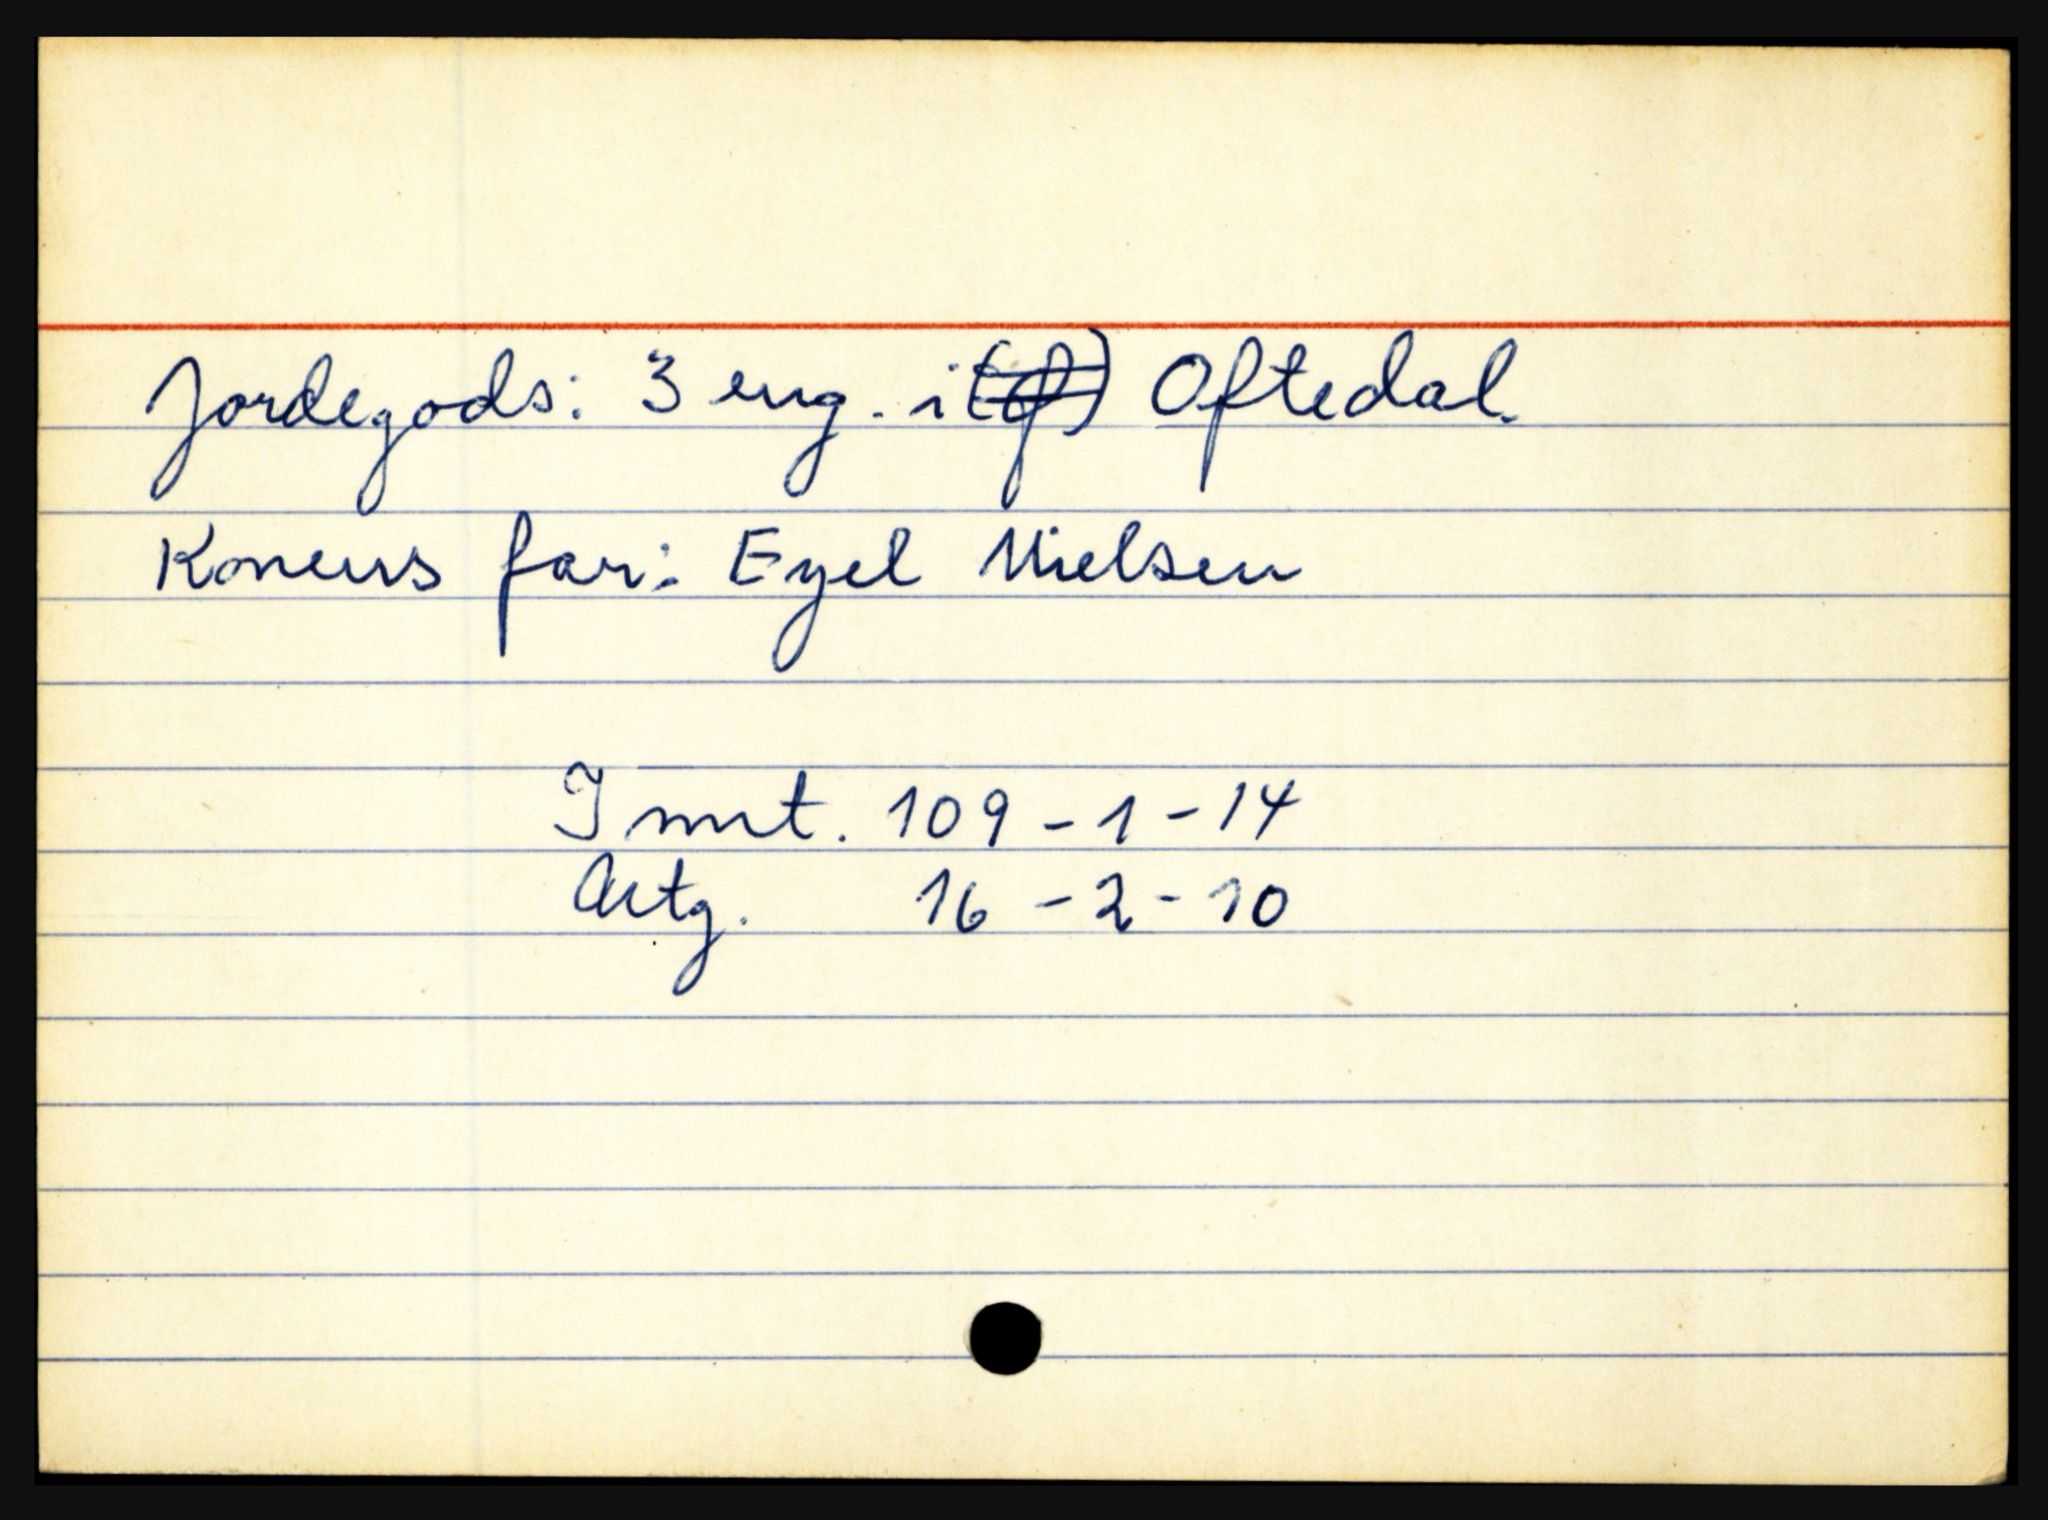 Jordegods: 3 eng. i Oftedal.
Konens far: Eyel Nielsen
I mrt. 109 - 1 - 14
Artg. 16 - 2 - 10